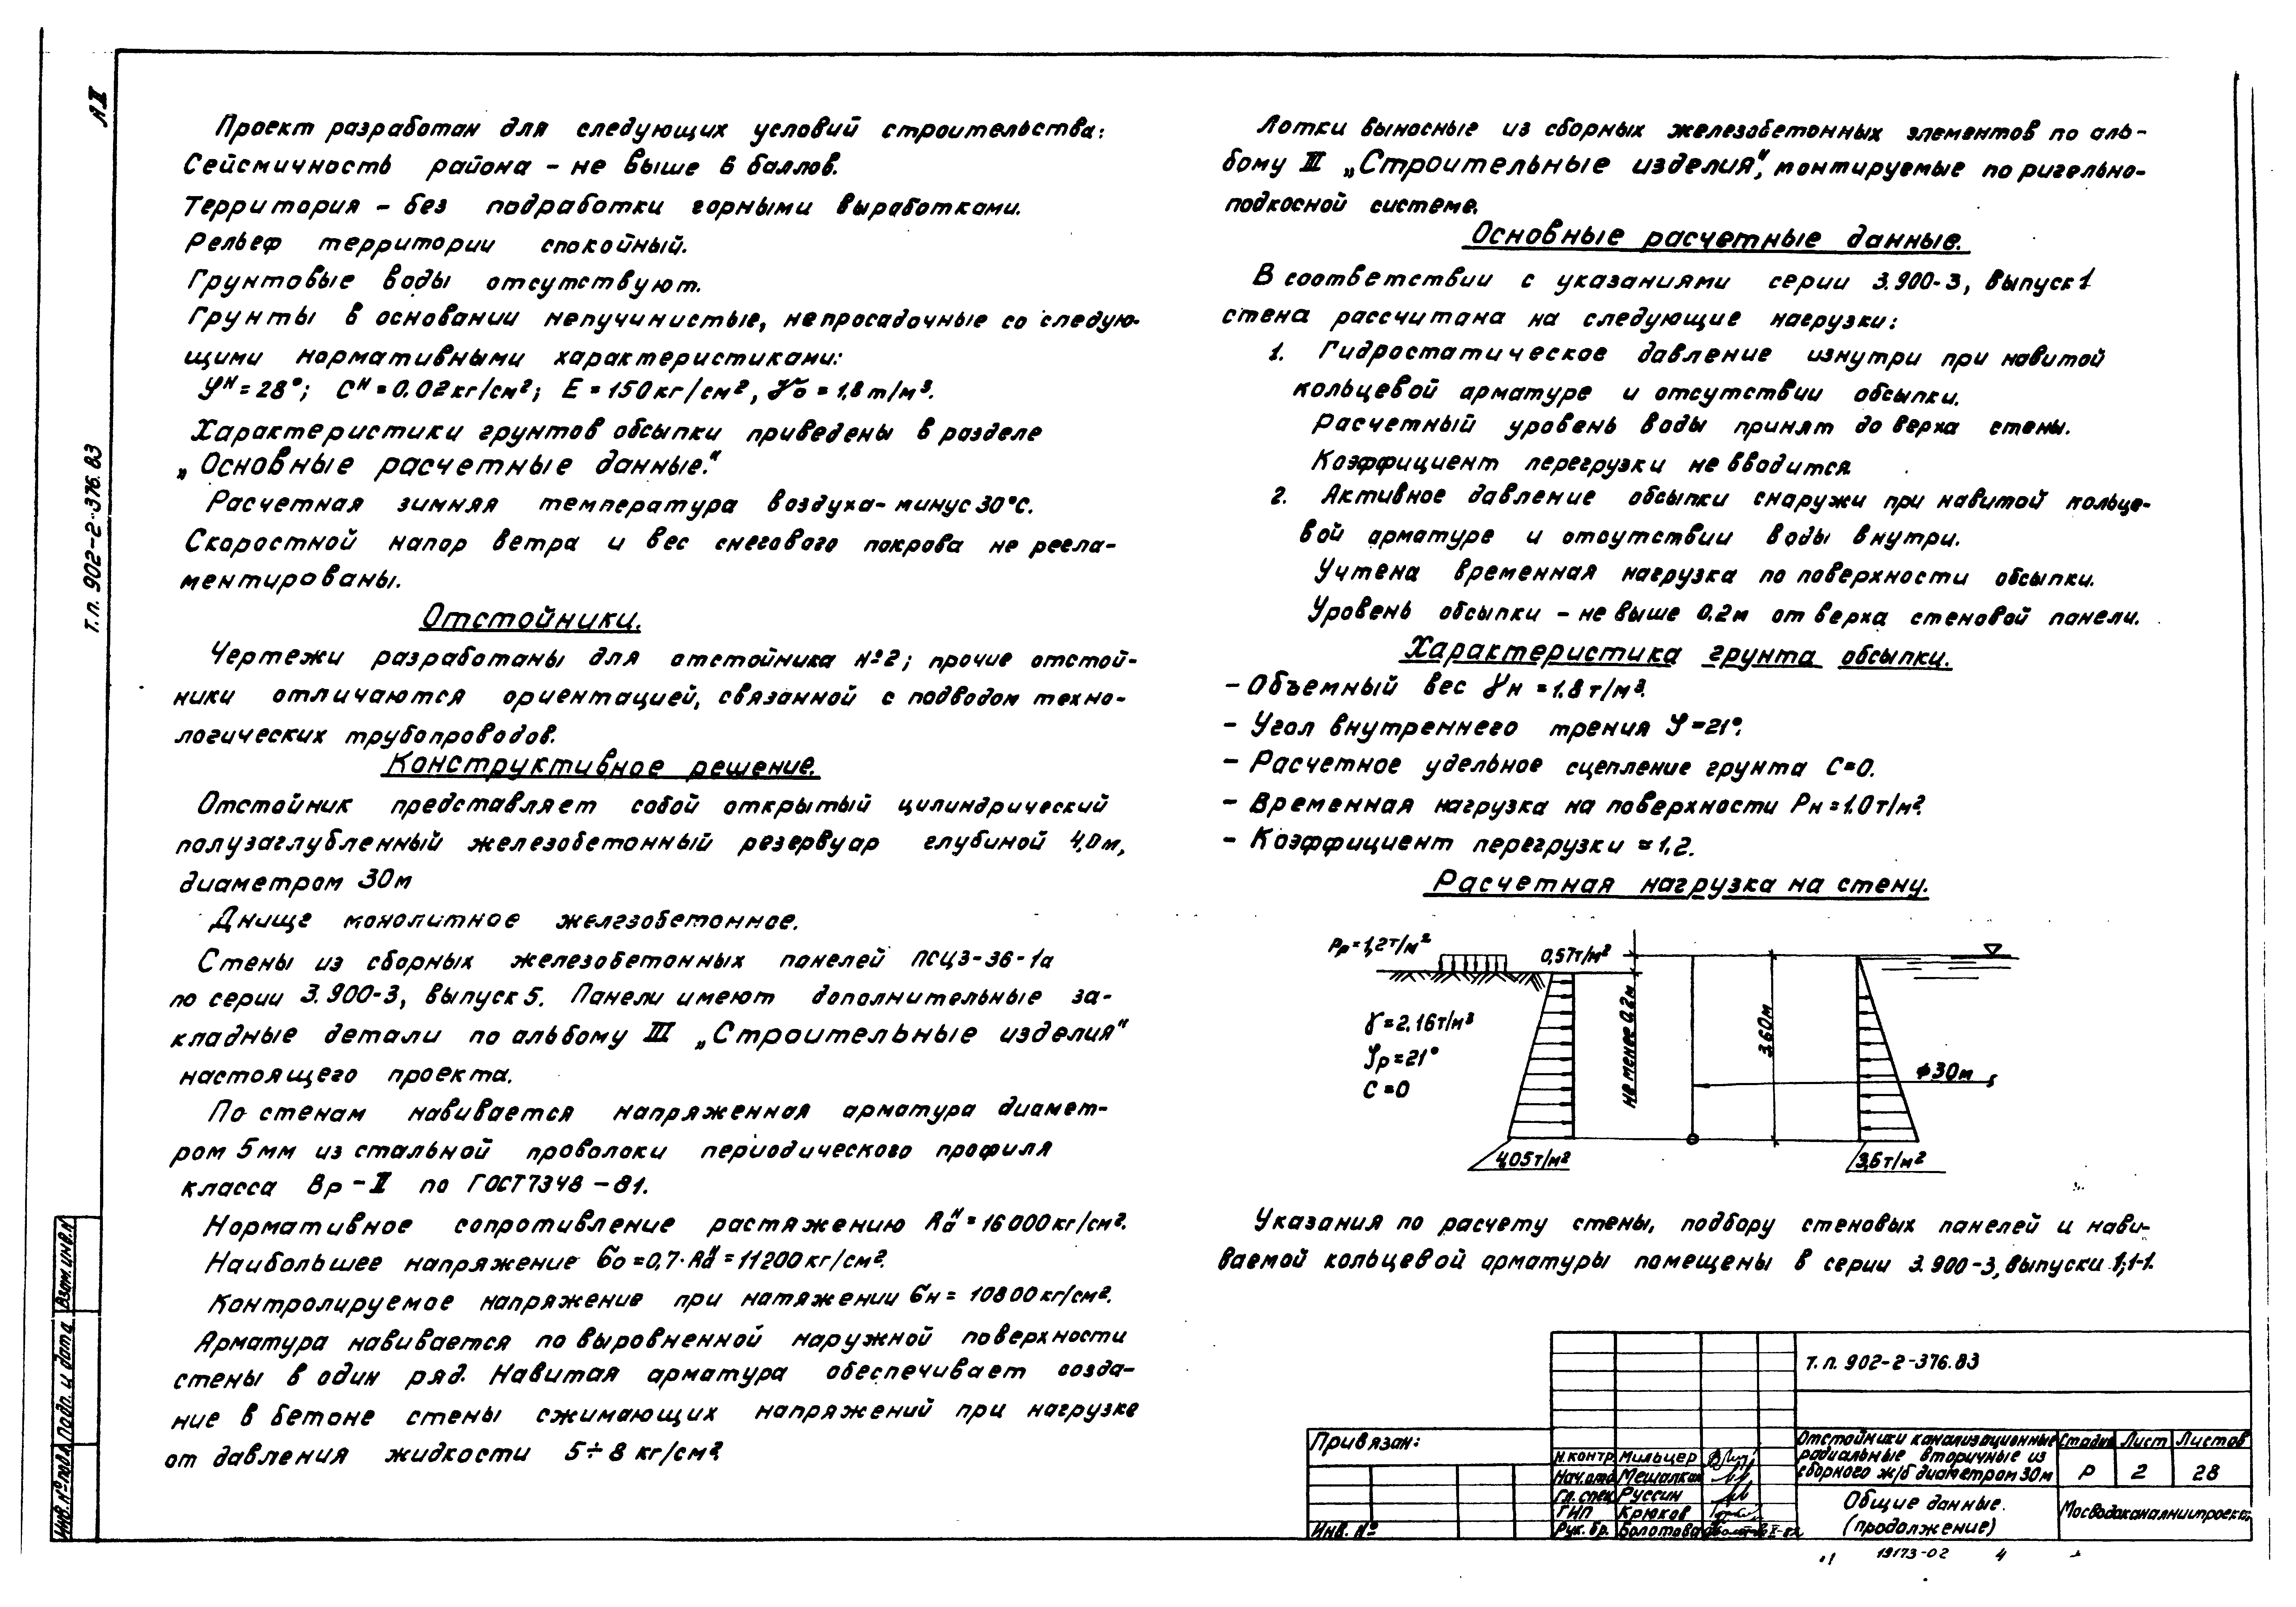 А II
Т.П. 902-2-376.83
Проект разработан для следующих условий строительства:
Сейсмичность района – не выше 6 баллов.
Территория – без подработки горными выработками.
Рельеф территории спокойный.
Грунтовые воды отсутствуют.
Грунты в основании непучинистые, непросадочные со следую-
щими нормативными характеристиками:
φн = 28°; Сн = 0.02 кг/см²; Е = 150 кг/см², γо = 1,8 т/м³.
Характеристики грунтов обсыпки приведены в разделе
„Основные расчетные данные."
Расчетная зимняя температура воздуха - минус 30°С.
Скоростной напор ветра и вес снегового покрова не регла-
ментированы.
Отстойники.
Чертежи разработаны для отстойника №2; прочие отстой-
ники отличаются ориентацией, связанной с подводом техно-
логических трубопроводов.
Конструктивное решение.
Отстойник представляет собой открытый цилиндрический
полузаглубленный железобетонный резервуар глубиной 4,0 м,
диаметром 30м
Днище монолитное железобетонное.
Стены из сборных железобетонных панелей ПСЦ3-36-1а
по серии 3.900-3, выпуск 5. Панели имеют дополнительные за-
кладные детали по альбому III „Строительные изделия"
настоящего проекта.
По стенам навивается напряженная арматура диамет-
ром 5 мм из стальной проволоки периодического профиля
класса Вр-II по ГОСТ 7348-81.
Нормативное сопротивление растяжению Rан = 16000 кг/см².
Наибольшее напряжение σо = 0,7·Rан = 11200 кг/см².
Контролируемое напряжение при натяжении σн = 10800 кг/см².
Арматура навивается по выровненной наружной поверхности
стены в один ряд. Навитая арматура обеспечивает созда-
ние в бетоне стены сжимающих напряжений при нагрузке
от давления жидкости 5÷8 кг/см²
Лотки выносные из сборных железобетонных элементов по аль-
бому III „Строительные изделия", монтируемые по ригельно-
подкосной системе.
Основные расчетные данные.
В соответствии с указаниями серии 3.900-3, выпуск 1
стена рассчитана на следующие нагрузки:
1. Гидростатическое давление изнутри при навитой
кольцевой арматуре и отсутствии обсыпки.
Расчетный уровень воды принят до верха стены.
Коэффициент перегрузки не вводится.
2. Активное давление обсыпки снаружи при навитой кольце-
вой арматуре и отсутствии воды внутри.
Учтена временная нагрузка по поверхности обсыпки.
Уровень обсыпки – не выше 0.2 м от верха стеновой панели.
Характеристика грунта обсыпки.
– Объемный вес γн = 1.8 т/м³.
– Угол внутреннего трения φ = 21°.
– Расчетное удельное сцепление грунта С=0.
– Временная нагрузка на поверхности Рн = 1.0 т/м².
– Коэффициент перегрузки = 1,2.
Расчетная нагрузка на стену.
Рр = 1,2 т/м²
0,57 т/м²
не менее 0.2м
3,60м
γ = 2.16 т/м³
φр = 21°
С = 0
ϕ30м
4,05 т/м²
3,6 т/м²
Указания по расчету стены, подбору стеновых панелей и нави-
ваемой кольцевой арматуры помещены в серии 3.900-3, выпуски 1; 1-1.
Взам. инв. №
Подп. и дата
Инв. № подл.
Привязан:
Инв. №
Н.контр. Мильцер
Нач.отд. Мешалкин
Гл. спец. Руссин
ГИП Крюков
Рук. бр. Болотова
Т.П. 902-2-376.83
Отстойники канализационные
радиальные вторичные из
сборного ж/б диаметром 30м
Стадия Лист Листов
Р 2 28
Общие данные.
(продолжение)
Мосводоканалниипроект
19173-02 4